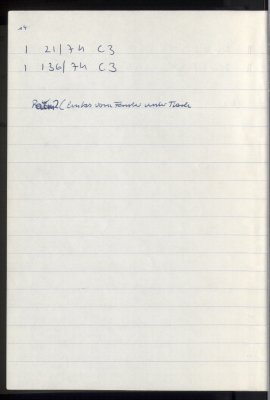 1 21/74 C3
1 136/74 C3
( links vom Fenster unter Tisch